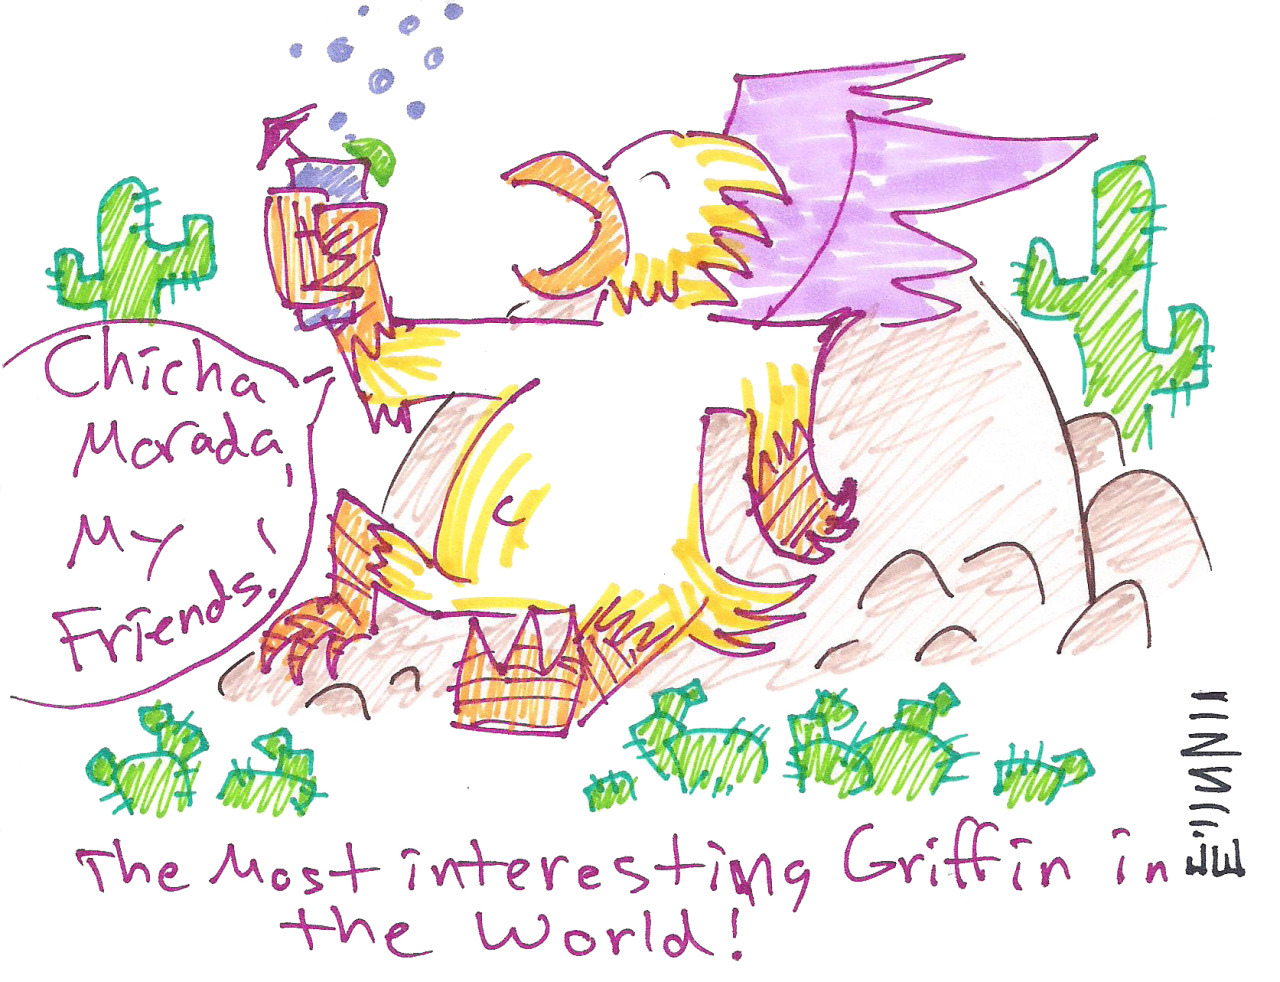 Chicha
Morada,
My
Friends.
The Most interesting Griffin in
the World!